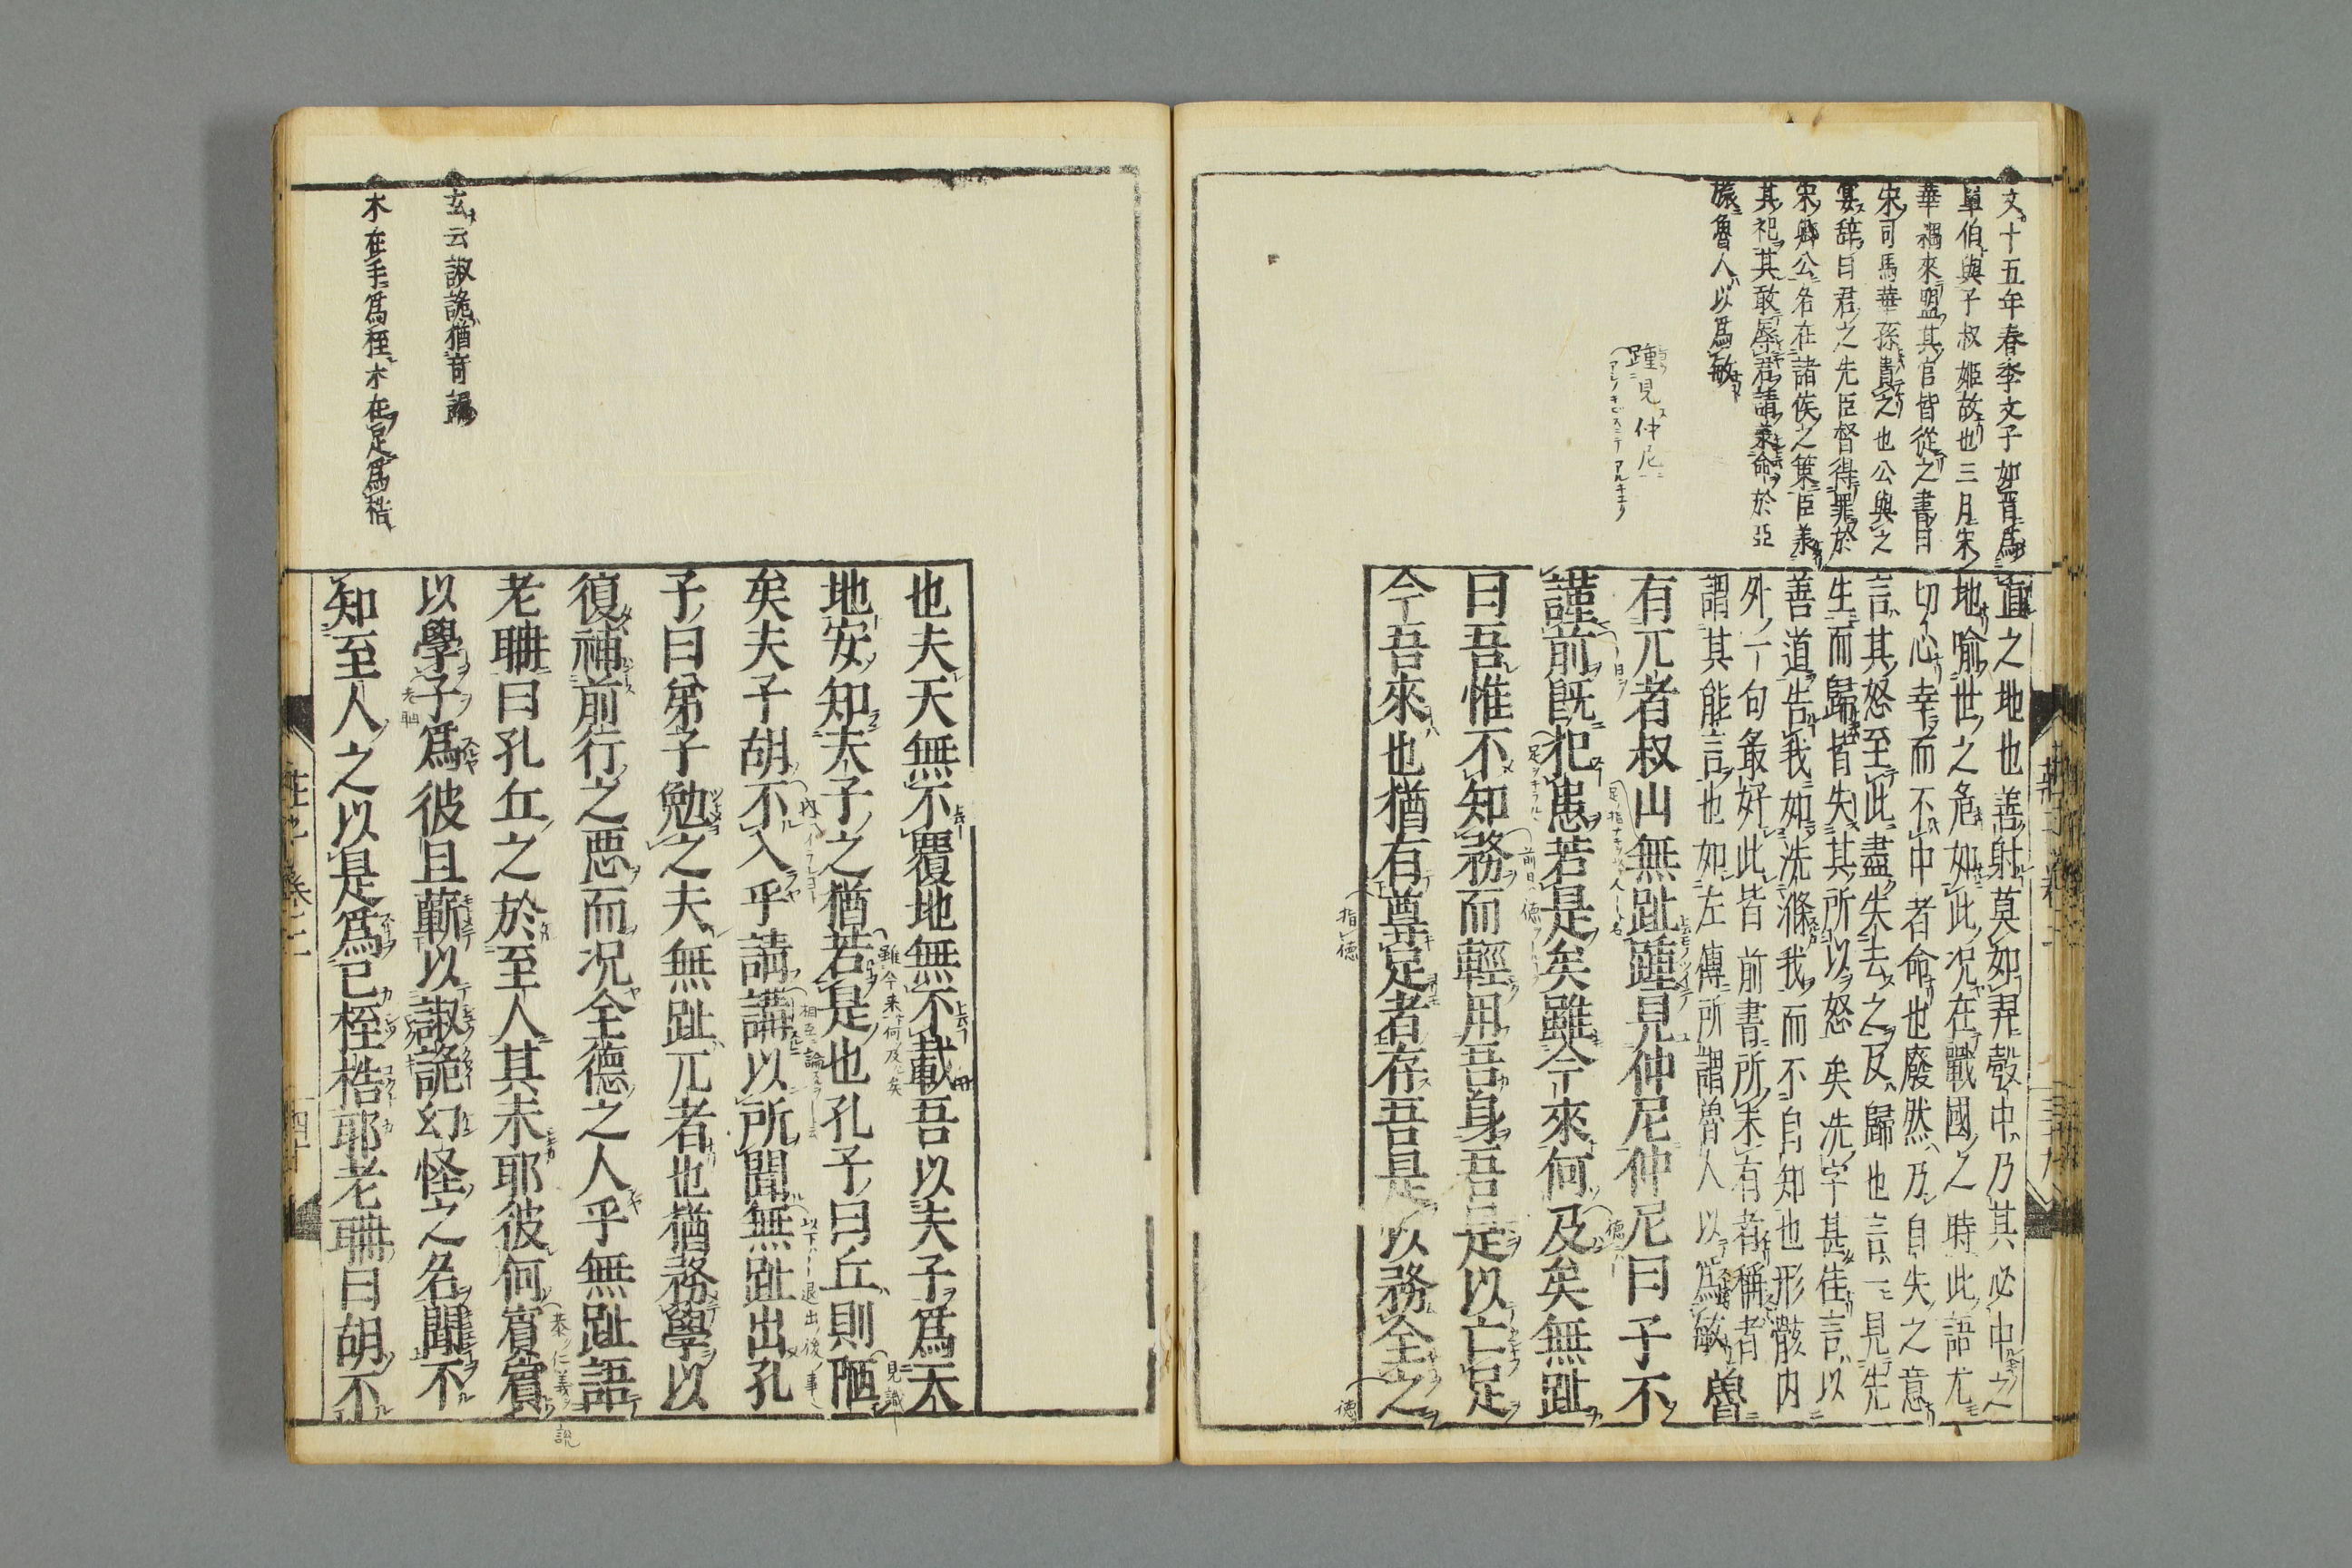 文十五年春季文子如晋爲
單伯與子叔姬故也三月宋
華耦來盟其官皆從之書曰
宋司馬華孫貴之也公與之
宴辭曰君之先臣督得罪於
宋殤公名在諸侯之策臣承
其祀其敢辱君請承命於亞
旅魯人以爲敏
踵見仲尼
直之地也善射莫如羿彀中乃其必中之
地喻世之危如此况在戰國之時此語尤
切心幸而不中者命也廢然乃自失之意
言其怒至此盡失去之反歸也言一見先
生而歸皆失其所以怒矣洗字甚佳言以
善道告我如洗滌我而不自知也形骸内
外一句最好此皆前書所未有者稱者
謂其能言也如左傳所謂魯人以爲敏 魯
有兀者叔山無趾踵見仲尼仲尼曰子不
謹前既犯患若是矣雖今來何及矣無趾
曰吾惟不知務而輕用吾身吾是以亡足
今吾來也猶有尊足者存吾是以務全之
指德
德
莊子卷二
三十九
玄云諔詭猶奇譎
木在手爲桎木在足爲梏
也夫天無不覆地無不載吾以夫子爲天
地安知夫子之猶若是也孔子曰丘則陋
矣夫子胡不入乎請講以所聞無趾出孔
子曰弟子勉之夫無趾兀者也猶務學以
復補前行之惡而况全德之人乎無趾語
老聃曰孔丘之於至人其未耶彼何賓賓
以學子爲彼且蘄以諔詭幻怪之名聞不
知至人之以是爲己桎梏耶老聃曰胡不
老聃
莊子卷二
四十